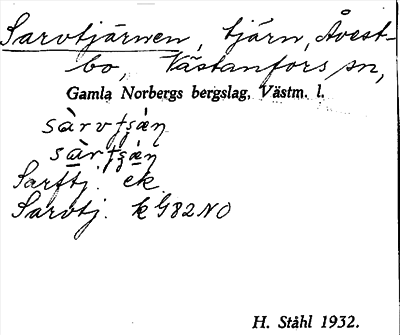 Sarvtjärnen, tjärn, Åvest-
bo, Västanfors sn,
Gamla Norbergs bergslag, Västm. l.
Sarftj. ek.
Sarvtj. k G82NO
H. Ståhl 1932.